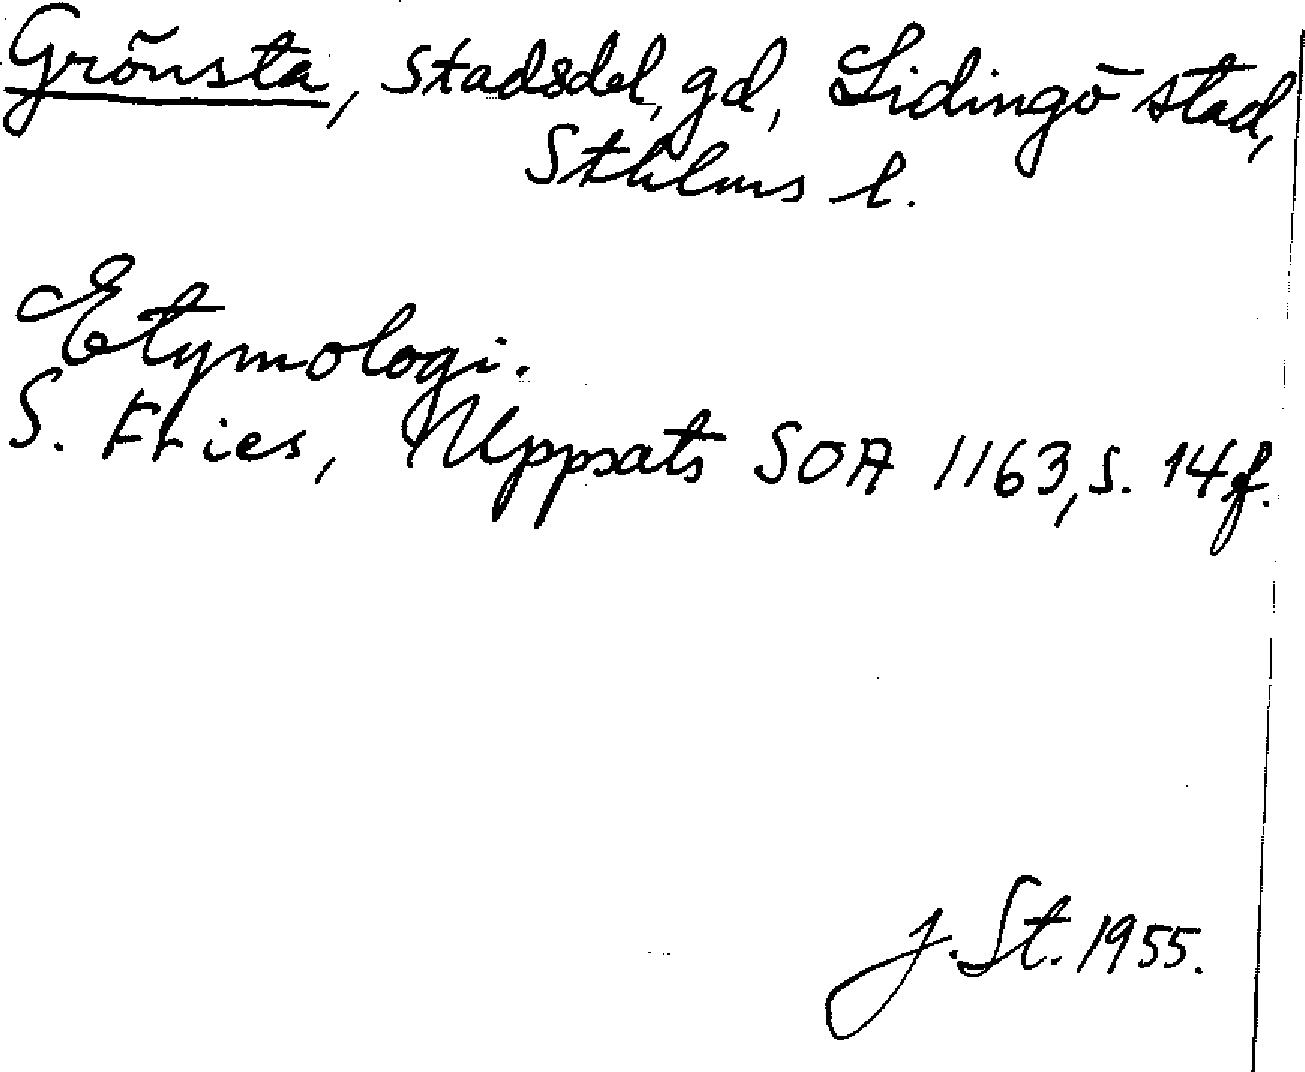 Grönsta, stadsdel, gd, Lidingö stad,
Sthlms l.
Etymologi.
S. Fries, Uppsats SOA 1163, s. 14 f.
J. St. 1955.